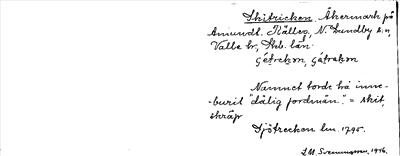 Skitrecken. Åkermark på
Amundt. Källeg, N. Lundby s:n,
Valle hr, Skb. län.
gétrekon, gátrakon
Namnet torde ha inne-
burit "dålig jordmån". = skit,
skräp
Sjötrecken lm. 1795.
S.M. Svenungsson. 1916.